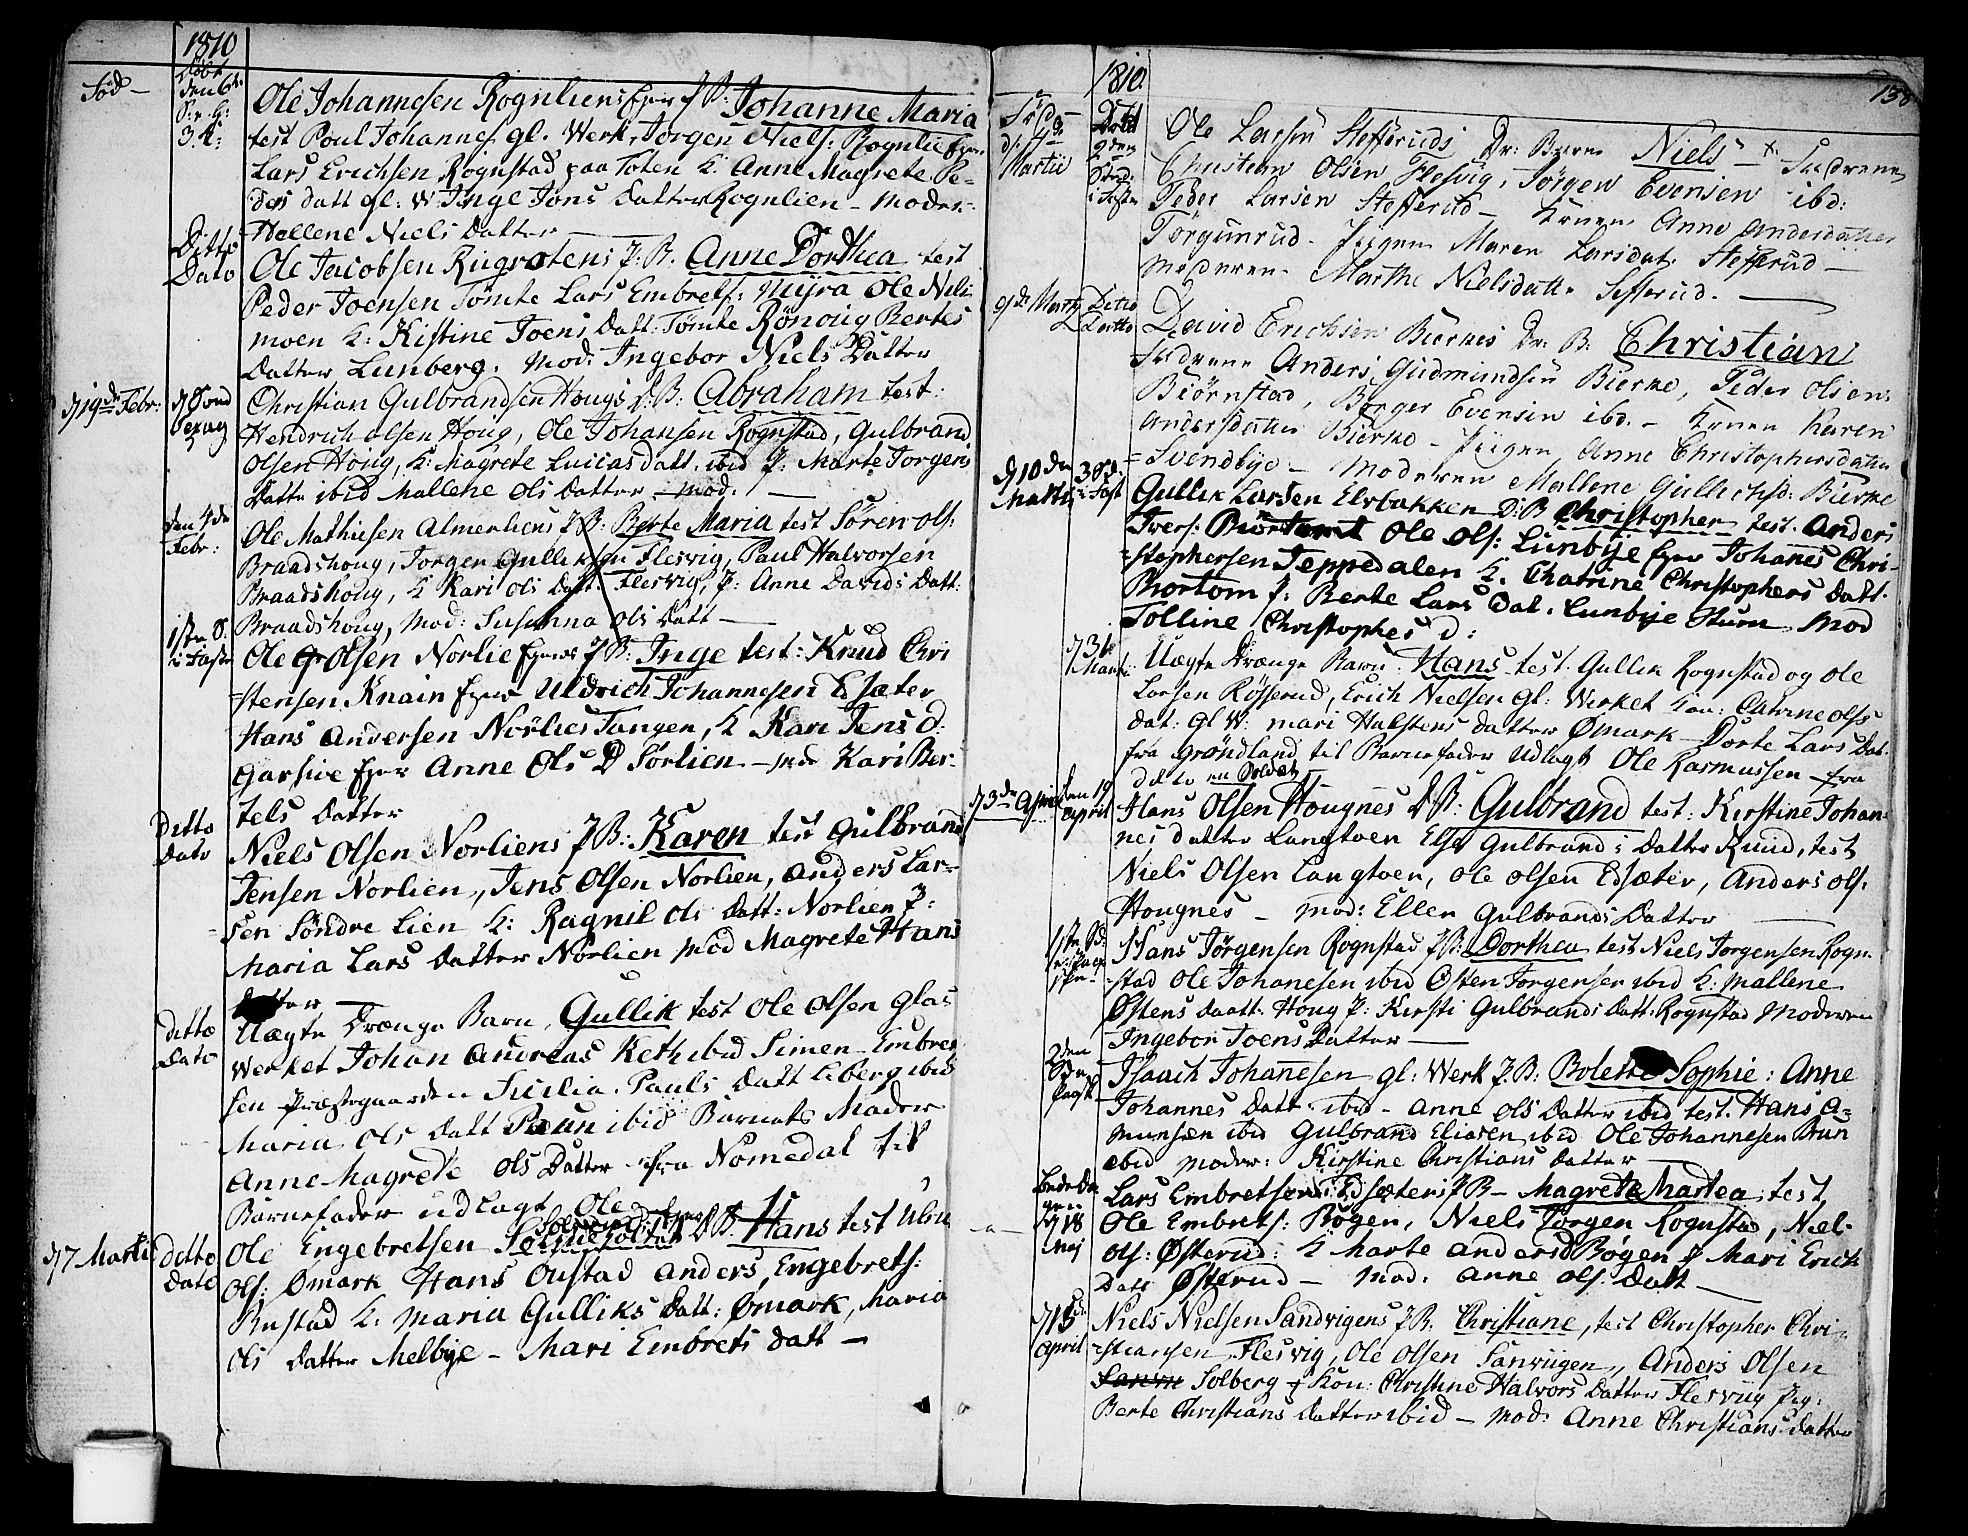 1810
Fød -
Døbt
den 6te
S. e. H:
3 K:
Ole Johannesen Rognliens Eyer P B: Johanne Maria
test Poul Johannes: gl. Werk, Jørgen Niels: Rognlie Eyer
Lars Erichsen Rognstad paa Toten K: Anne Magrete Pe-
ders datt gl: W: Inge Jons Datter Rognlien - Moder-
Hellene Niels Datter
Ditto
Dato
Ole Jacobsen Rugrotens P. B. Anne Dorthea test
Peder Joensen Tømte Lars Embrets: Myra Ole Nels:
moen K: Kistine Joens Datt: Tømte Rønoug Bertes
Datter Lunberg. Mod: Ingebor Niels Datter
d 19de Febr:
d Sønd
Sexag
Christian Gulbrandsen Hougs D: B: Abraham test:
Hendrich Olsen Houg, Ole Johansen Rognstad, Gulbrand
Olsen Houg, K: Magrete Luccas datt. ibid P: Marte Jorgens
Datte ibid Mallene Ols Datter - Mod. -
den 4de
Febr:
Ole Mathiesen Almerliens P B: Berte Maria test Sören Ols:
Braadshoug, Jorgen Gulliksen Flesvig, Paul Halvorsen
Braadshoug, K Kari Ols Datt. Flesvig, P: Anne Davids Datt:
Braadshoug, Mod: Susanna Ols Datt -
1ste S.
i Faste
Ole Olsen Norlie Eyers P B: Inge test: Knud Chri
stensen Knain Eyer Uldrich Johannesen Edsæter
Hans Andersen Norlies Tangen, K Kari Jens d:
Garsive Eyer Anne Ols D Sörlien - Mod Kari Ber-
tels Datter
Ditto
Dato
Niels Olsen Norliens P B: Karen test Gulbrand
Jensen Norlien, Jens Olsen Norlien, Anders Lar-
sen Søndre Lien K: Ragnil Ols Datt: Norlien P:
Maria Lars Datter Norlien Mod Magrete Hans
Datter
ditto
Dato
Uægte Drænge Barn, Gullik test Ole Olsen Glas
Werket Johan Andreas Keth ibid Simen Embret
sen Præstegaarden Sicilia Pauls Datt Liberg ibid
Maria Ols Datt Paun ibid Barnets Moder
Anne Magrete Ols Datter fra Nomedal til
Barnefader udlagt Ole
d 7 Martii
ditto
Dato
Ole Engebretsen D B: Hans test Ulric
Ols: Ømark Hans Oustad Anders Engebrets:
Rustad K: Maria Gulliks Datt: Ømark, Maria
Ols Datter Melbye - Mari Embrets Datt -
1810.
138
Fød
d: 4de
Martii
Døbt
2den
Sønd:
i Faste
Ole Larsen Stefferuds Dr: Barn Niels - Fadderne
Christian Olsen Flesvig, Jørgen Evensen ibd:
Peder Larsen Stefferud - Konen Anne Andersdatter
Torgunrud. Pigen Maren Larsdat. Stefferud -
Moderen Marthe Nielsdatter Stefferud. -
9de Marty
Ditto
Datto
David Erichsen Biernes Dr: B: Christian
Fadderne Anders Gudmundsen Bierke, Peder Olsen
Biørnstad, Borger Evensen ibd. - Konen Karen
Andersdatter Bierke - Piigen Anne Christophersdatter
Svendbye - Moderen Mallene Gullichsd: Bierke
d 10den
Martii
3 S.
i Fast
Gullik Larsen Elvbakken D: B Christopher test. Anders
Ivers: Biortomt Ole Ols: Lunbye Eyer Johanes Chri-
stophersen Teppedalen K. Chatrine Christophers Datt.
Bortom P: Berte Lars Dat: Lunbye Stuen Mod
Tolline Christophes d:
d 31
Marti
Uægte Drænge Barn: Hans test. Gullik Rognstad og Ole
Larsen Røsserud, Erich Nielsen Gl: Werket Kon: Catrine Ols
Dat: Gl W: Mari Halstens Datter Ømark Dorte Lars Dat.
fra Grøndland til Barnefader Udlagt Ole Rasmussen fra
dito en Soldat
d 3de April
den 19
April
Hans Olsen Hougnes D B. Gulbrand test: Kirstine Johan-
nes datter Langtoen Else Gulbrands Datter Ruud, test
Niels Olsen Langtoen, Ole Olsen Edsæter, Anders Ols:
Hougnes - Mod: Ellen Gulbrands Datter
1ste S.
Hans Jørgensen Rognstad P B: Dorthea test Niels Jorgensen Rogn-
stad Ole Johanesen ibid Østen Jorgensen ibid K: Mallene
Østens Daatt. Houg P: Kirsti Gulbrands Datt: Rognstad Moderen
Ingebor Joens Datter
2den
Sdag
Paask
Isaach Johanesen gl: Werk P. B: Bolette Sophie: Anne
Johannes Datt: ibid - Anne Ols Datter ibid test. Hans A-
munsen ibid Gulbrand Eliasen ibid Ole Johannesen Brun
ibid Moder: Kirstine Christians Datter
Bededa
gen
d 18
Maj
Lars Embretsen Edsæters P B - Magrete Martea test
Ole Embrets: Bøgen, Niels Jorgen Rognstad, Niel-
Ols: Østerud: K Marte Anders d Bøgen P Mari Erich
Datt Østerud - Mod: Anne Ols: Datt
d 15de
April
Niels Nielsen Sandvigens P B. Christiane, test Christopher Chri-
stiansen Flesvig, Ole Olsen Sanviigen, Anders Olsen
Solberg Kon: Christine Halvors Datter Flesviig Pig:
Berte Christians Datter ibid - Mod: Anne Christians Datter